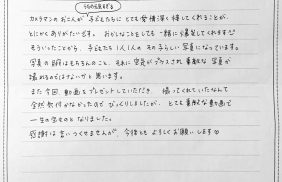 うちの子見すぎる
カメラマンのお二人が 子どもたちに とても愛情深く接してくれることが、
とにかくありがたいです。おかしなことをしても 一緒に爆笑してくれますし
そういったことから、子どもたち1人1人の その子らしい 写真になっています。
写真の説明はもちろんのこと、それに 空気がプラスされ 素敵な 写真が
撮れるのではないかと思います。
また 今回、動画をプレゼントしていただき、撮ってくれていたなんて
全然気付かなかったので、びっくりしましたが、とても素敵な動画で
一生の宝ものとなりました。
感謝は言いつくせませんが、今後とも よろしくお願いします♡